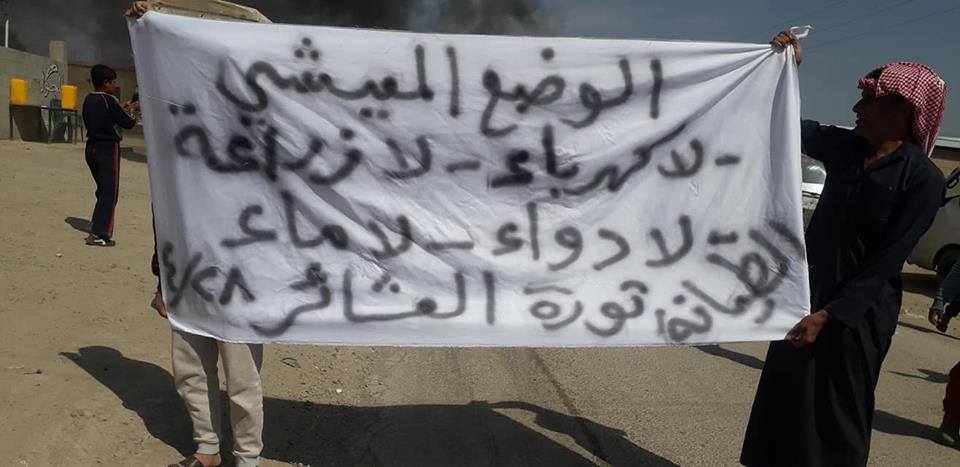 الوضع المعيشي
- لا كهرباء - لا زراعة
لا دواء - لا ماء
الطيانة ثورة العشائر ٤/٢٨